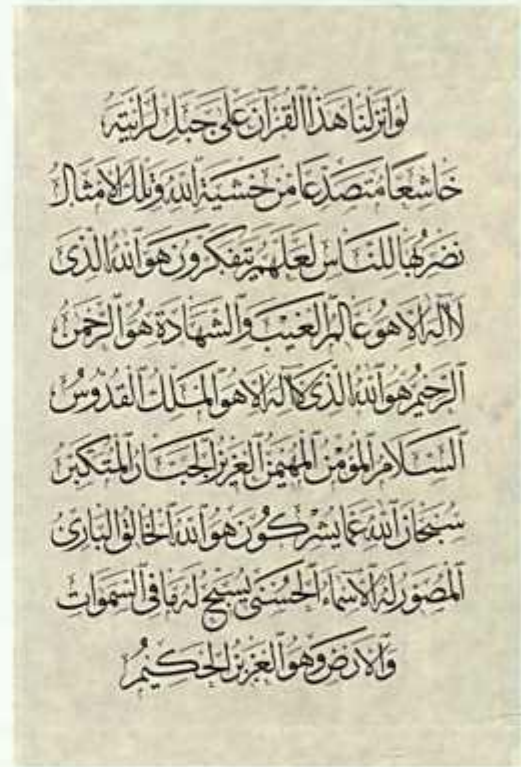 لو انزلنا هذا القرآن على جبل لرايته
خاشعا متصدعا من خشية الله وتلك الامثال
نضربها للناس لعلهم يتفكرون هو الله الذى
لا اله الا هو عالم الغيب والشهادة هو الرحمن
الرحيم هو الله الذى لا اله الا هو الملك القدوس
السلام المؤمن المهيمن العزيز الجبار المتكبر
سبحان الله عما يشركون هو الله الخالق البارئ
المصور له الاسماء الحسنى يسبح له ما فى السموات
والارض وهو العزيز الحكيم